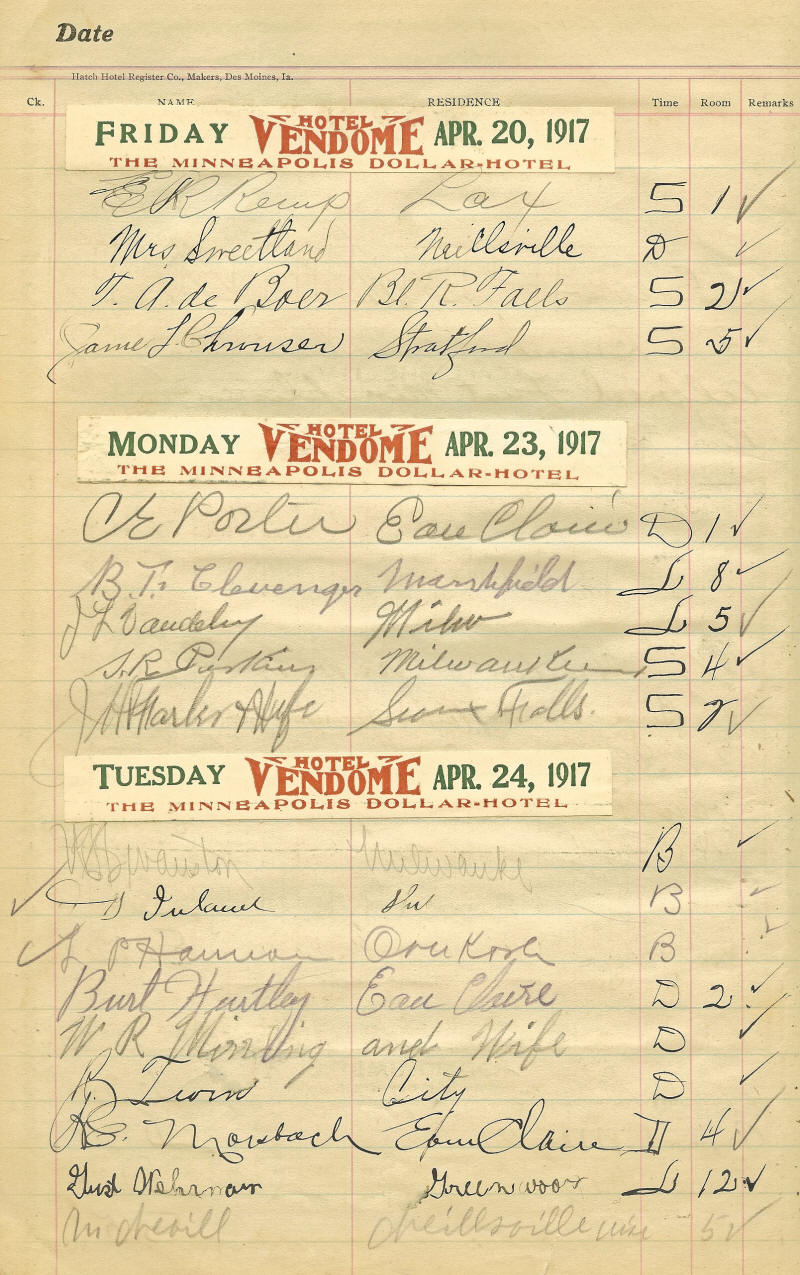 Date
Hatch Hotel Register Co., Makers, Des Moines, Ia.
Ck. NAME RESIDENCE Time Room Remarks
FRIDAY HOTEL VENDOME APR. 20, 1917
THE MINNEAPOLIS DOLLAR-HOTEL
E R Kemp Lax S 1 ✓
Mrs Sweetland Neillsville D ✓
T. A. de Boer Bl. R. Falls S 2 ✓
L. Chrouser Stratford S 5 ✓
MONDAY HOTEL VENDOME APR. 23, 1917
THE MINNEAPOLIS DOLLAR-HOTEL
C E Porter Eau Claire D 1 ✓
B. T. Clevenger Marshfield L 8 ✓
J L Milw L 5 ✓
S. R. Perkins Milwaukee S 4 ✓
J H & Wife Sioux Falls. S 2 ✓
TUESDAY HOTEL VENDOME APR. 24, 1917
THE MINNEAPOLIS DOLLAR-HOTEL
Milwaukee B ✓
✓ Inland B ✓
L P Hannan B ✓
Burt Hartley Eau Claire D 2 ✓
W R and Wife D ✓
City D ✓
Morsbach Eau Claire D 4 ✓
Gust Wehrman Greenwood L 12 ✓
Neillsville Wis 5 ✓